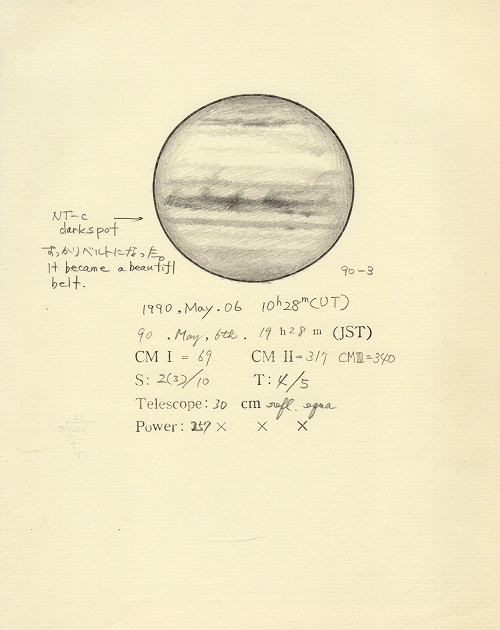 NT-C →
darkspot
すっかりベルトになった。
It became a beautifl
belt.
90-3
1990, May. 06 10h28m(UT)
90 . May, 6th. 19 h 28 m (JST)
CM I = 69 CM II = 317 CMIII=340
S: 2(3)/10 T: 4/5
Telescope: 30 cm refl. equa
Power: 257 × × ×